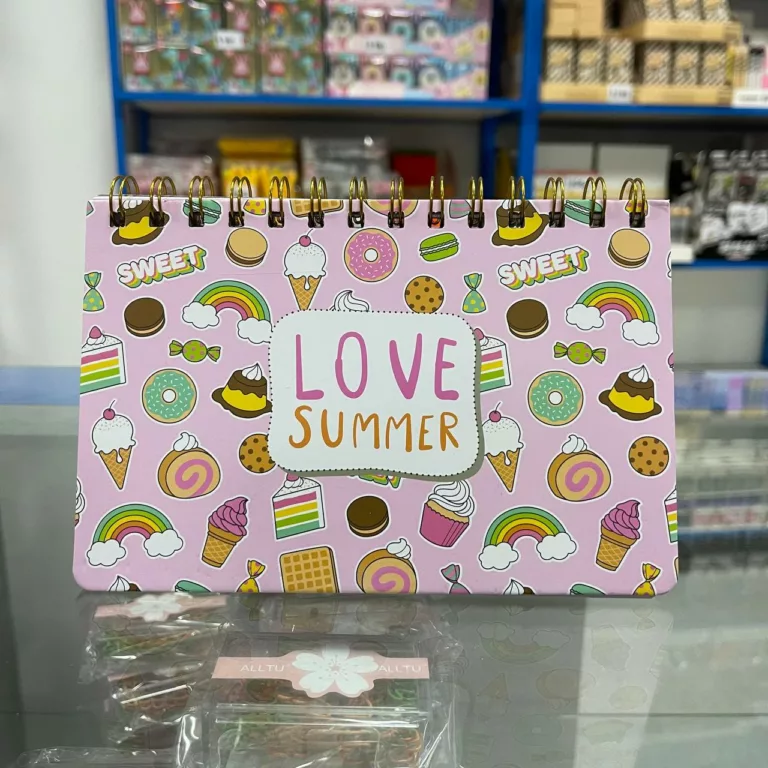 SWEET
SWEET
LOVE
SUMMER
ALLTU ALLTU